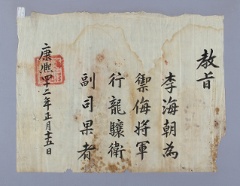 教旨
李海朝為
禦侮將軍
行龍驤衛
副司果者
康熙
二年正月十五日